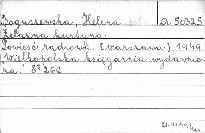 Boguszewska, Helena a. 50325
Żelazna kurtyna.
Powieść radiowa. [Warszawa] 1949
Wielkopolska księgarnia wydawnicza. 8° 266